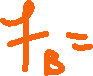 f_B =